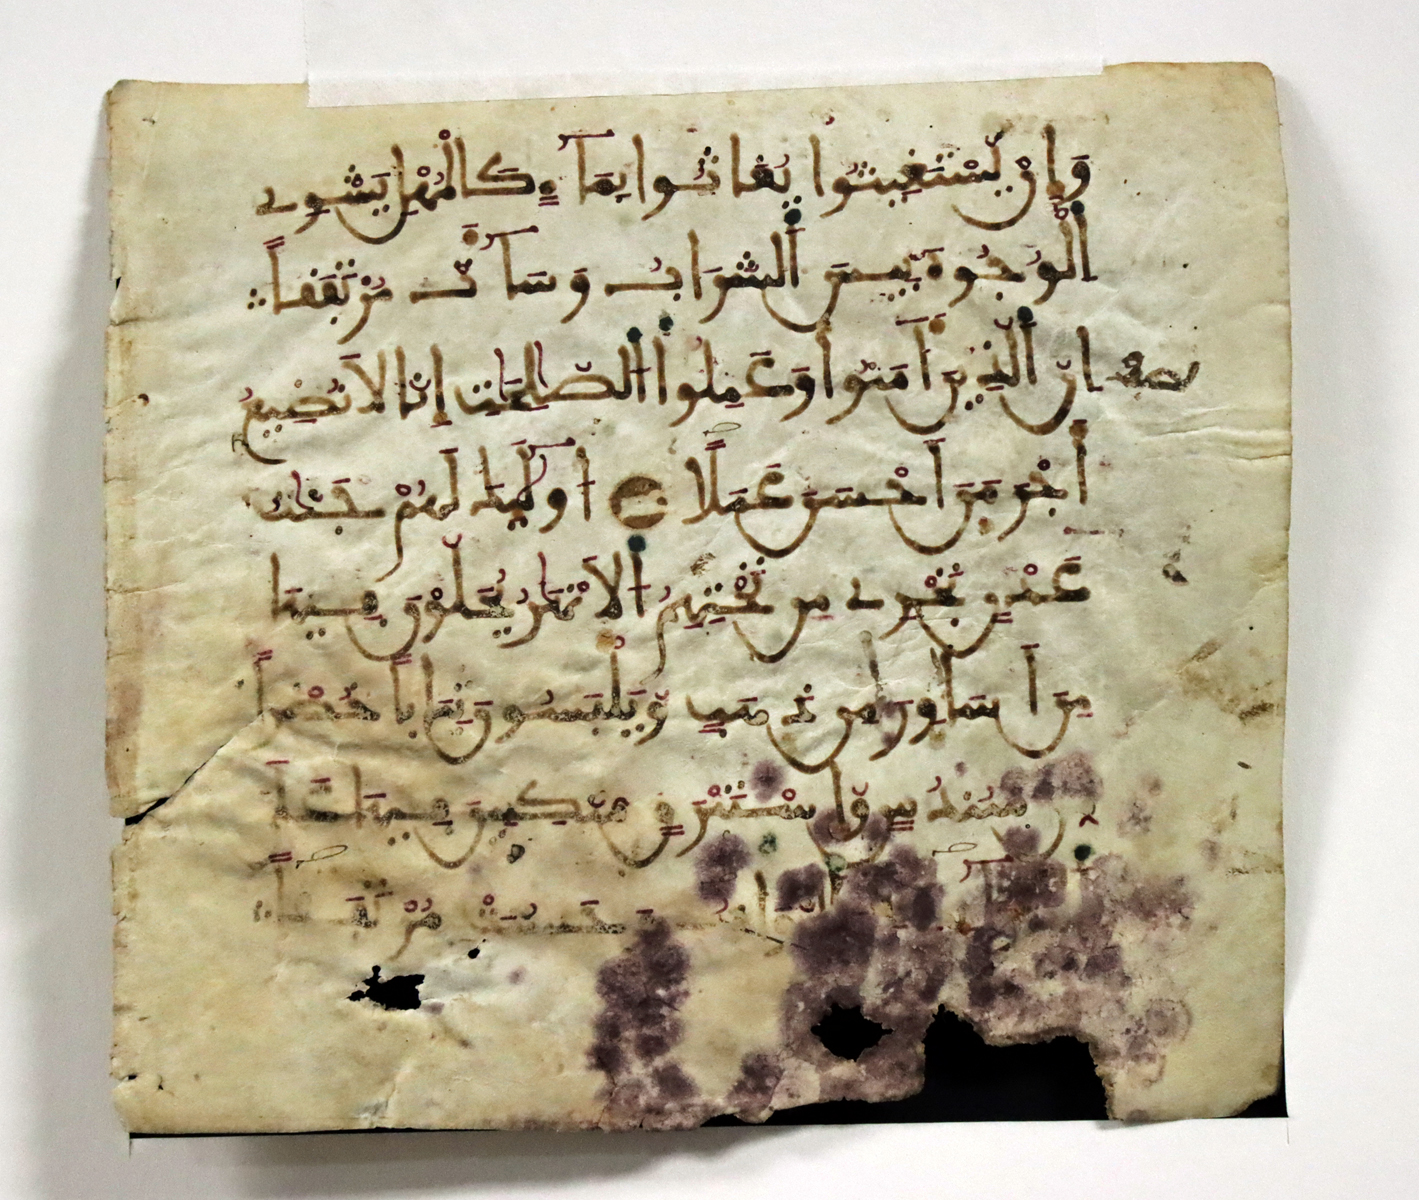 وَإِنْ يَّسْتَغِيثُوا يُغَاثُوا بِمَآءٍ كَالْمُهْلِ يَشْوِے
اَ۬لْوُجُوهَ بِيسَ اَ۬لشَّرَابُ وَسَآءَتْ مُرْتَفَقاً
إِنَّ اَ۬لذِينَ ءَامَنُوا وَعَمِلُوا اُ۬لصَّٰلِحَٰتِ إِنَّا لَا نُضِيعُ
أَجْرَ مَنَ اَحْسَنَ عَمَلًا اُوْلَٰٓئِكَ لَهُمْ جَنَّٰتُ
عَدْنٍ تَجْرِے مِن تَحْتِهِمُ اُ۬لَانْهَٰرُ يُحَلَّوْنَ فِيهَا
مِنَ اَسَاوِرَ مِن ذَهَبٍ وَّيَلْبَسُونَ ثِيَاباً خُضْراً
مِّن سُندُسٍ وَّإِسْتَبْرَقٍ مُّتَّكِـِٕينَ فِيهَا عَلَى
وَحَسُنَتْ مُرْتَفَقاً